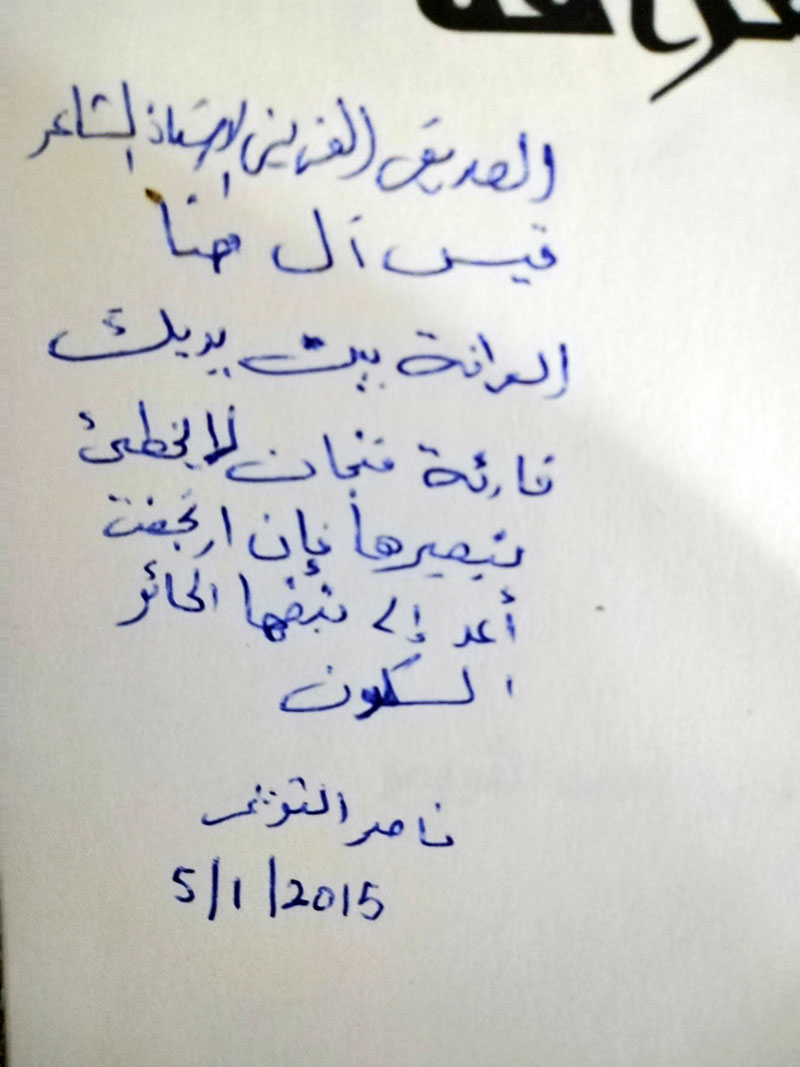 الصديق القريني الاستاذ الشاعر
قيس آل مهنا
العرافة بين يديك
قارئة فنجان لا يخطئ
تبصيرها فإن ارتجفت
أعد إلى نبضها الحائر
السكون
ناصر
5/1/2015